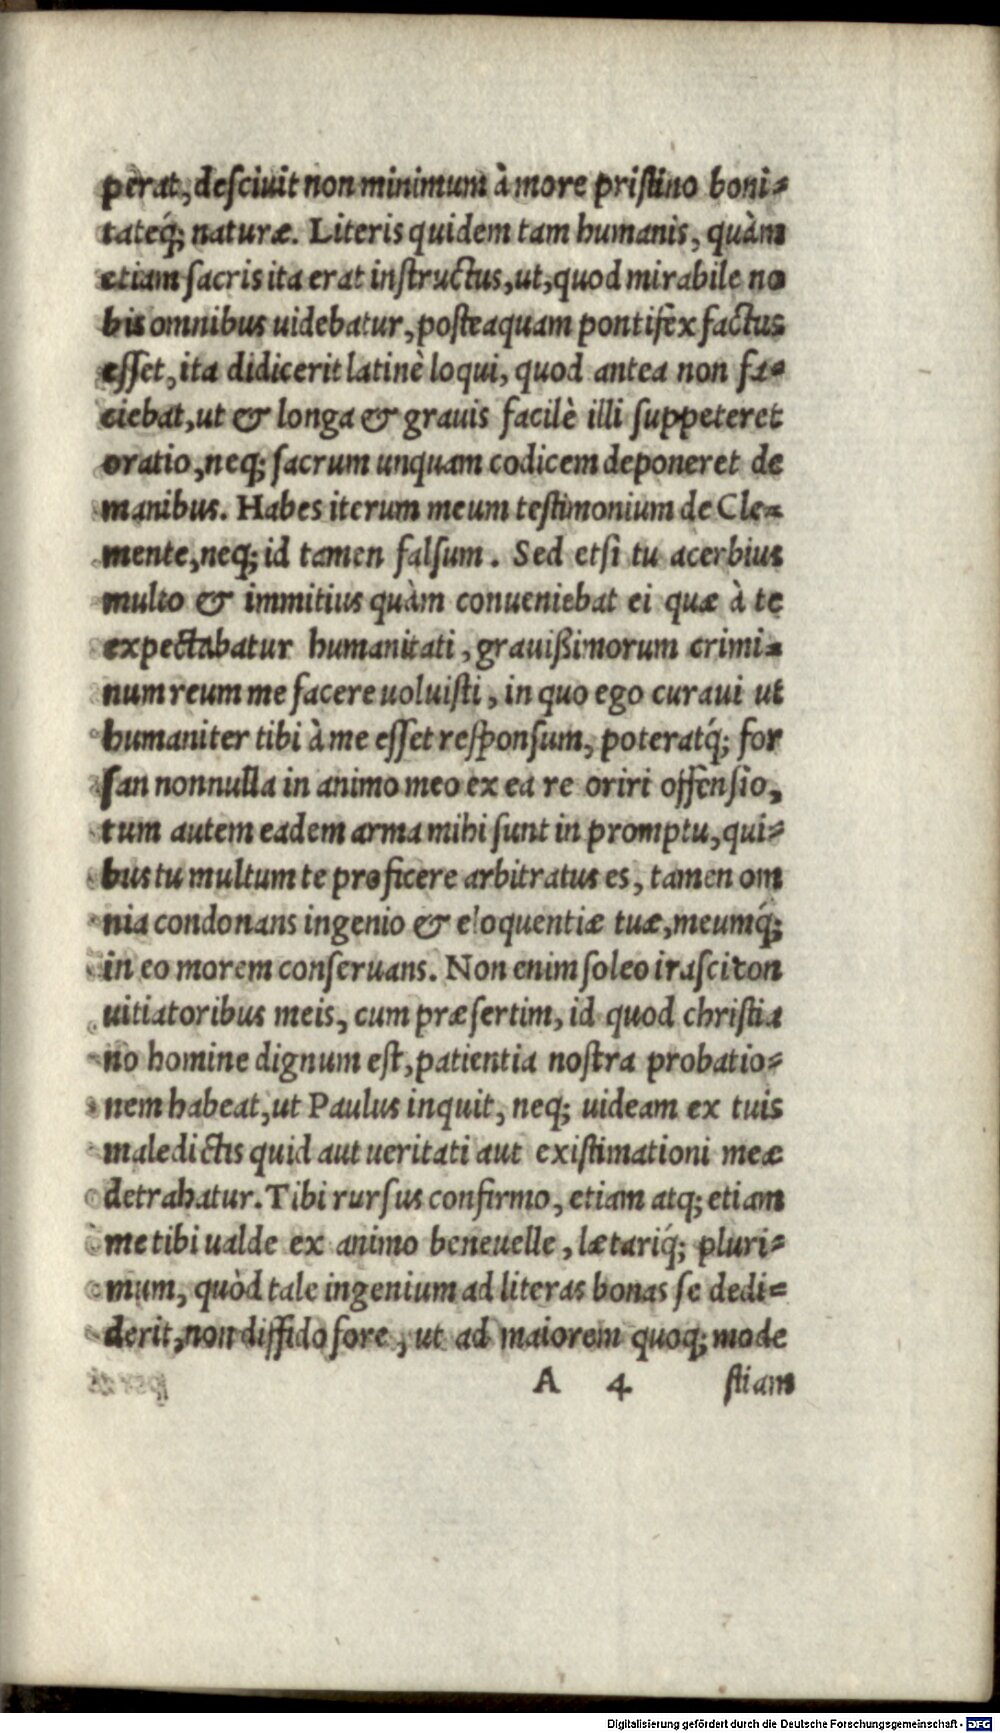 perat, desciuit non minimum à more pristino boni=
tateq́; naturæ. Literis quidem tam humanis, quàm
etiam sacris ita erat instructus, ut, quod mirabile no
bis omnibus uidebatur, posteaquam pontifex factus
esset, ita didicerit latinè loqui, quod antea non fa=
ciebat, ut & longa & grauis facilè illi suppeteret
oratio, neq; sacrum unquam codicem deponeret de
manibus. Habes iterum meum testimonium de Cle=
mente, neq; id tamen falsum. Sed etsi tu acerbius
multo & immitius quàm conueniebat ei quæ à te
expectabatur humanitati, grauißimorum crimi=
num reum me facere uoluisti, in quo ego curaui ut
humaniter tibi à me esset responsum, poteratq́; for
san nonnulla in animo meo ex ea re oriri offensio,
tum autem eadem arma mihi sunt in promptu, qui=
bus tu multum te proficere arbitratus es, tamen om
nia condonans ingenio & eloquentiæ tuæ, meumq́;
in eo morem conseruans. Non enim soleo irasci con
uitiatoribus meis, cum præsertim, id quod christia
no homine dignum est, patientia nostra probatio=
nem habeat, ut Paulus inquit, neq; uideam ex tuis
maledictis quid aut ueritati aut existimationi meæ
detrahatur. Tibi rursus confirmo, etiam atq; etiam
me tibi ualde ex animo beneuelle, lætariq́; pluri=
mum, quòd tale ingenium ad literas bonas se dedi=
derit, non diffido fore, ut ad maiorem quoq; mode
A 4 stiam
Digitalisierung gefördert durch die Deutsche Forschungsgemeinschaft - DFG